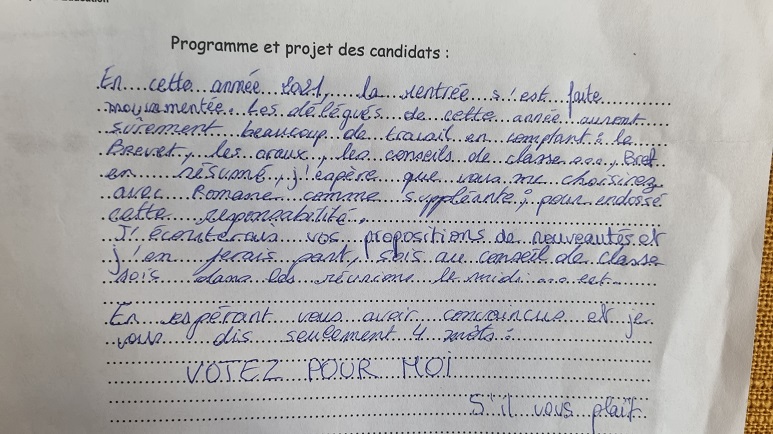 Programme et projet des candidats :
En cette année 2021, la rentrée s'est faite
mouvementée. Les délégués de cette année auront
sûrement beaucoup de travail en comptant : le
Brevet, les oraux, les conseils de classe..., Bref
en résumé, j'espère que vous me choisirez
avec Romane comme suppléante, pour endossé
cette responsabilité.
J'écouterais vos propositions de nouveautés et
j'en ferais part, sois au conseil de classe
sois dans les réunions le midi...
En espérant vous avoir convaincus et je
vous dis seulement 4 mots :
VOTEZ POUR MOI
S'il vous plaît.